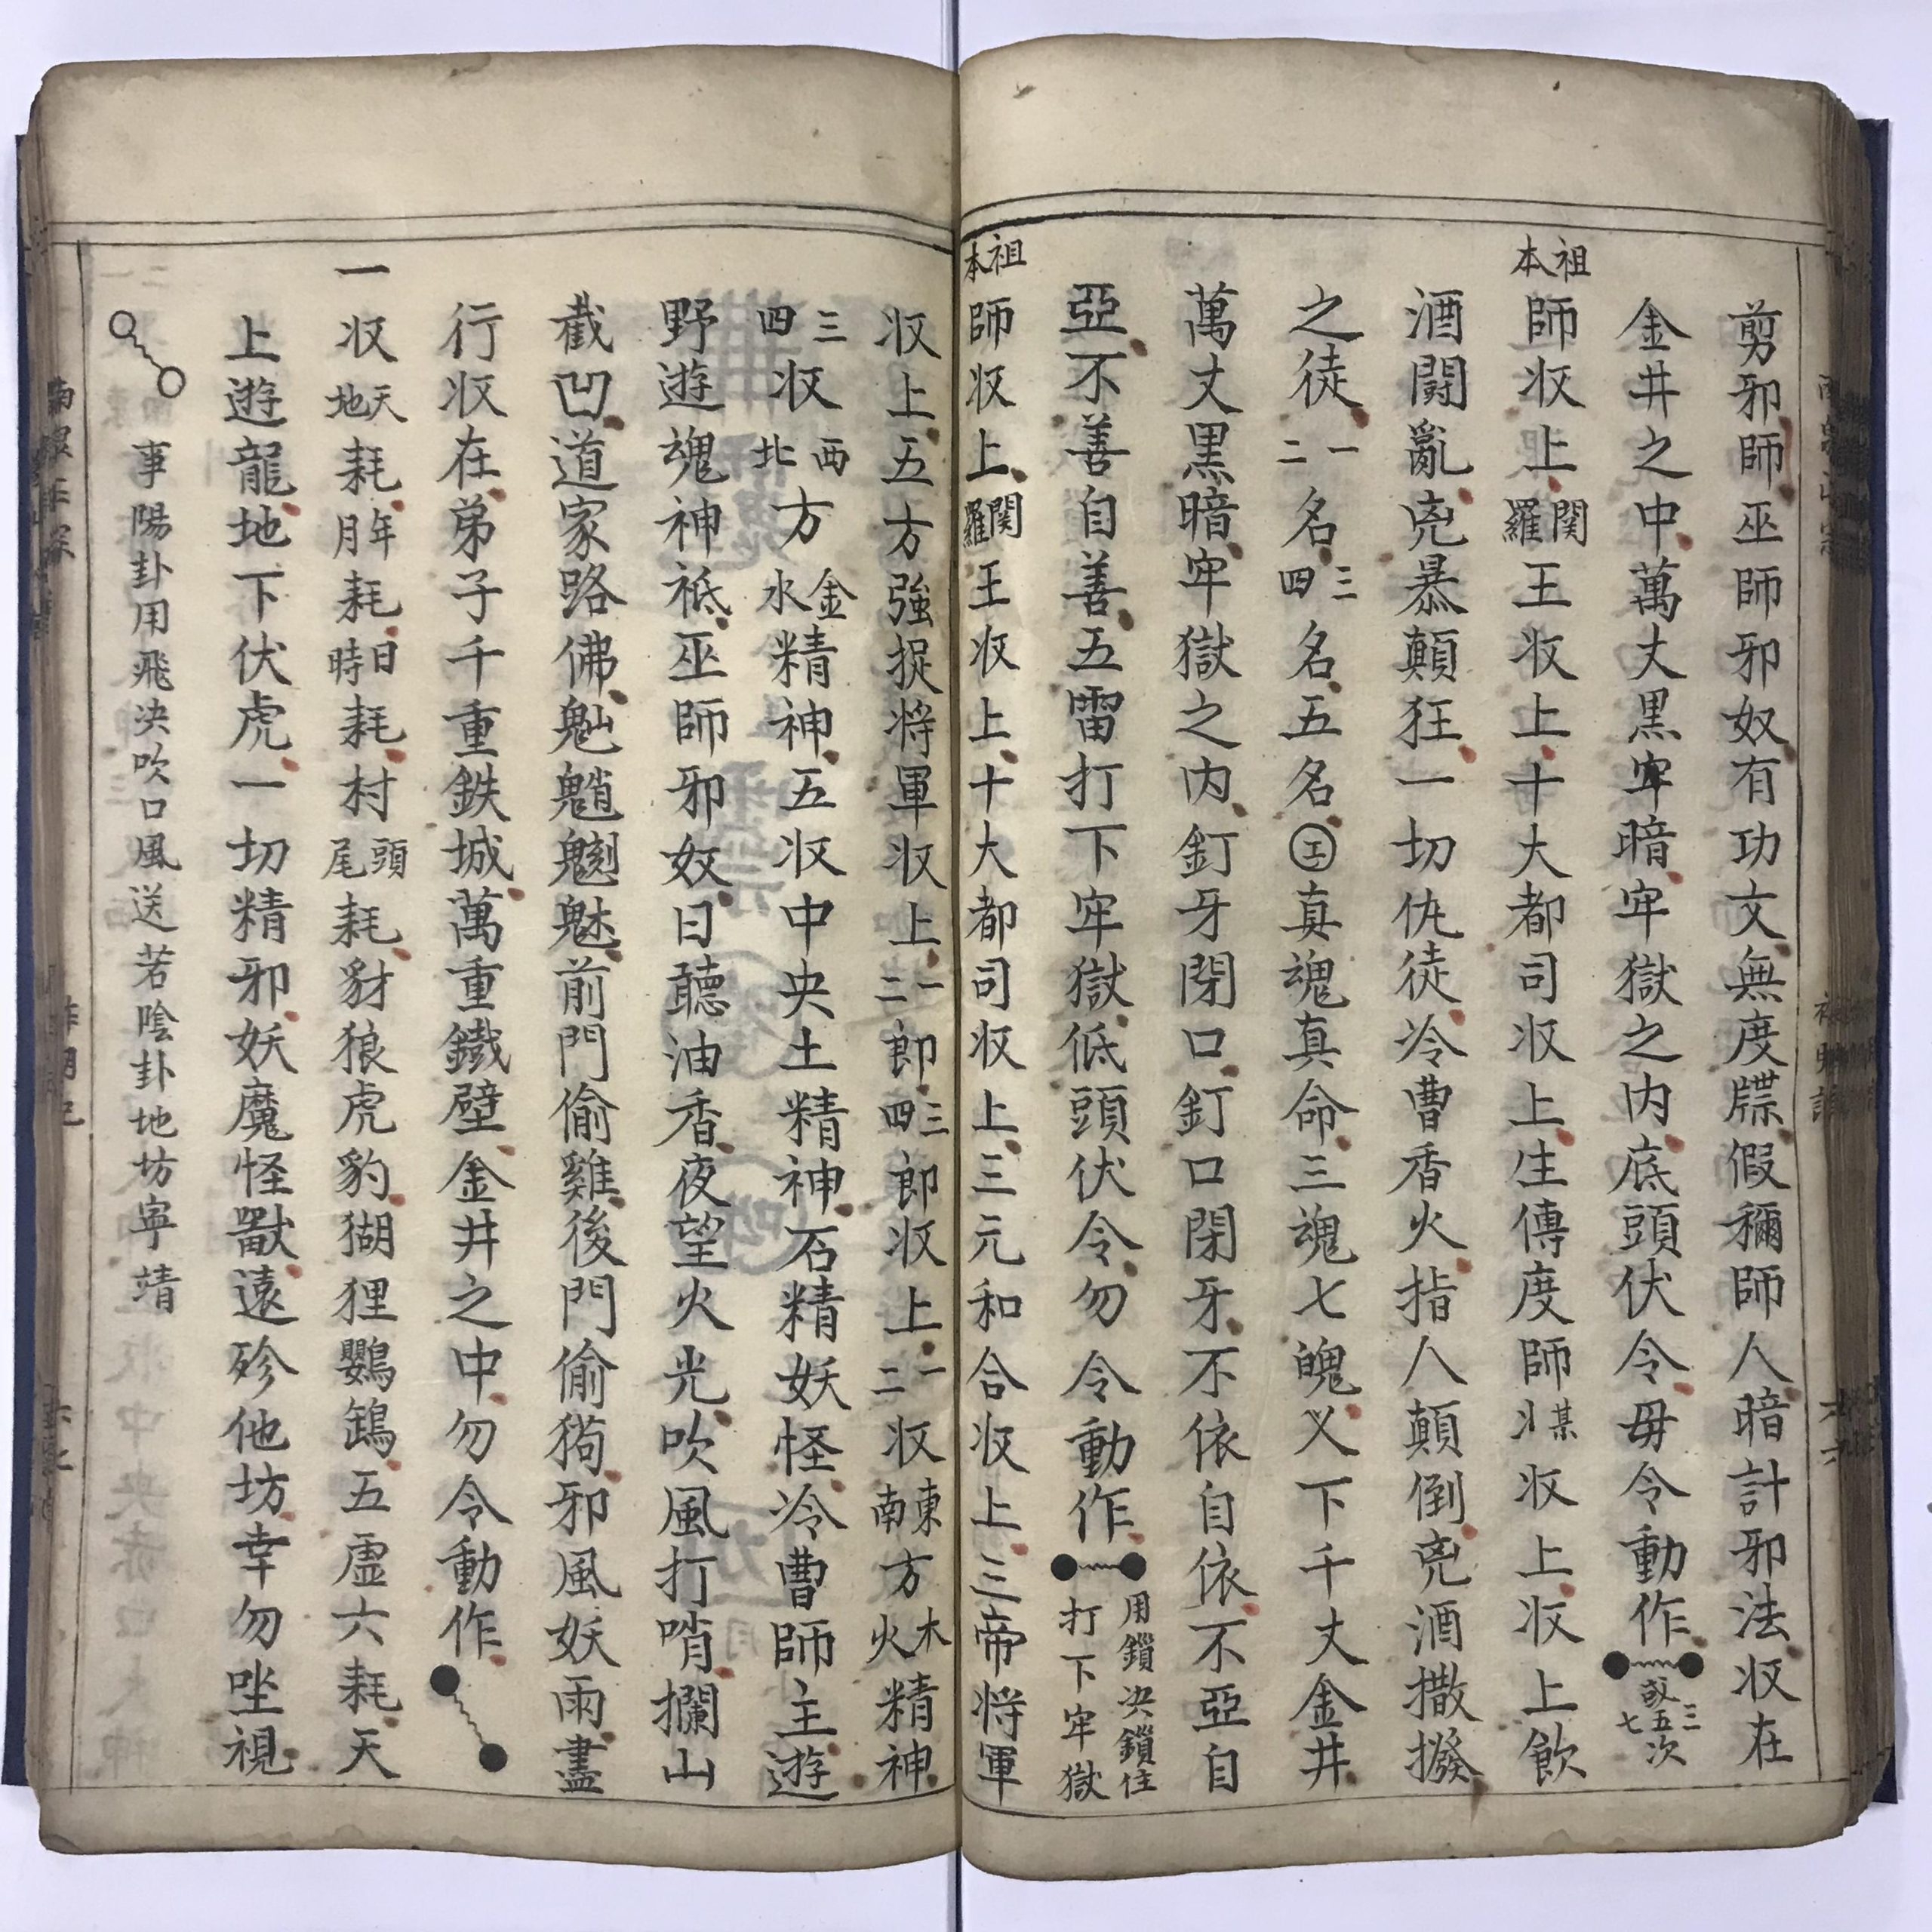 剪邪師巫師邪奴有功文無度牒假禰師人暗計邪法収在
金井之中萬丈黒牢暗牢獄之内底頭伏令毋令動作
敲三五七次
祖本師収上関羅王収上十大都司収上生傳度師某収上収上飲
酒閙亂兇暴顛狂一切仇徒冷曹香火指人顛倒兇酒撒撥
之徒一二名三四名五名㊣真魂真命三魂七魄乂下千丈金井
萬丈黒暗牢獄之内釘牙閉口釘口閉牙不依自依不亞自
亞不善自善五雷打下牢獄低頭伏令勿令動作
用鎖决鎖住
打下牢獄
祖本師収上関羅王収上十大都司収上三元和合収上三帝将軍
収上五方強捉将軍収上一二郎三四郎収上一二収東南方木火精神
三四収西北方金水精神五収中央土精神石精妖怪冷曹師主遊
野遊魂神祗巫師邪奴日聽油香夜望火光吹風打哨攔山
截凹道家路佛魀魈魍魅前門偷雞後門偷狗邪風妖雨盡
行収在弟子千重鉄城萬重鐵壁金井之中勿令動作
一収天地耗年月耗日時耗村頭尾耗豺狼虎豹猢狸鸚鵅五虚六耗天
上遊龍地下伏虎一切精邪妖魔怪獸遠殄他坊幸勿唑視
事陽卦用飛决吹口風送若陰卦地坊寧靖